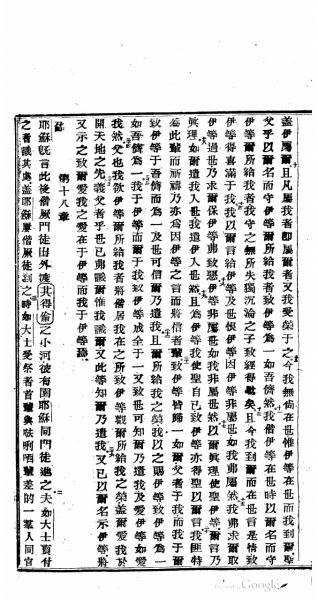 蓋伊屬爾且凡屬我者即屬爾者又我愛榮于之今我無倘在世惟伊等在世而我到爾聖
父乎以爾名而守伊等爾所給我者致伊等為一如吾儕然我偕伊等在世時以爾名而守
伊等爾所給我者我守之無所失獨沉淪之子致經得驗矣且今我到爾而在世言是情致
伊等得喜滿于我我以爾言給伊等及世恨伊等因伊等非屬世如我弗屬然我弗求爾取
伊等過世乃求爾保伊等弗致惡伊等非屬世如我非屬世然以爾眞理使聖伊等爾言乃
眞理如爾遣我入世我遣伊入世然且為伊等我使聖自已致伊等亦得聖以爾言我匪特
為此輩而祈禱乃亦為因伊等之言而將信者輩致伊等皆歸一如爾父者于我而我于爾
致伊等于吾儕而為一及世可信爾乃遣我且爾所給我之榮我以之賜伊等致伊等為一
如吾儕為一我于伊等而爾于我致伊等成全于一又致世可知爾乃遣我及愛伊等如愛
我然父也我欲伊等爾所給我者將偕居我在之所致伊等觀爾所給我之榮蓋爾愛我於
開天地之先義父者乎世已弗識爾惟我識爾又此等知爾乃遣我又已以爾名示伊等將
又示之致爾愛我之愛在于伊等而我于伊等
第十八章
耶穌旣言此後偕厥門徒出外度其得倫之小河彼有園耶穌同門徒進之夫如大士賣付
之者識其處蓋耶穌屢偕厥徒到之時如大士受祭者首輩與吪唎哂輩差的一羣人同官
Google